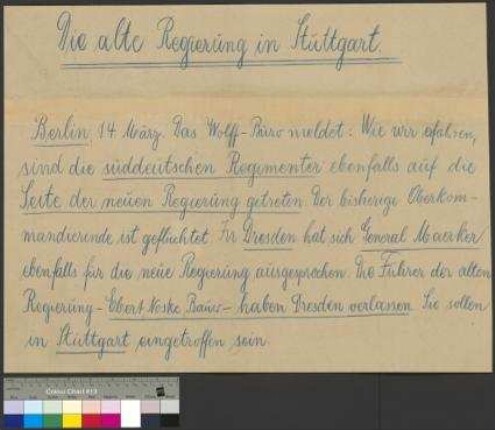 Die alte Regierung in Stuttgart.
Berlin, 14 März. Das Wolff-Büro meldet: Wie wir erfahren,
sind die süddeutschen Regimenter ebenfalls auf die
Seite der neuen Regierung getreten. Der bisherige Oberkom-
mandierende ist geflüchtet. In Dresden hat sich General Maerker
ebenfalls für die neue Regierung ausgesprochen. Die Führer der alten
Regierung - Ebert Noske, Bauer - haben Dresden verlassen. Sie sollen
in Stuttgart eingetroffen sein.
Colour Chart #13